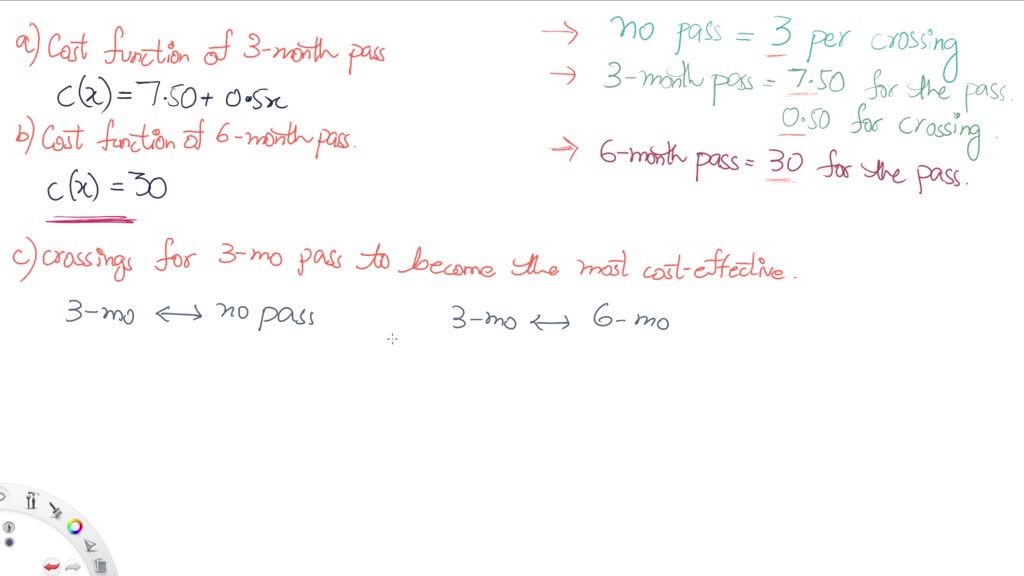 a) Cost function of 3-month pass
C(x) = 7.50 + 0.5x
b) Cost function of 6-month pass.
C(x) = 30
→ no pass = 3 per crossing
→ 3-month pass = 7.50 for the pass.
0.50 for crossing.
→ 6-month pass = 30 for the pass.
c) crossings for 3-mo pass to become the most cost-effective.
3-mo ↔ no pass
3-mo ↔ 6-mo